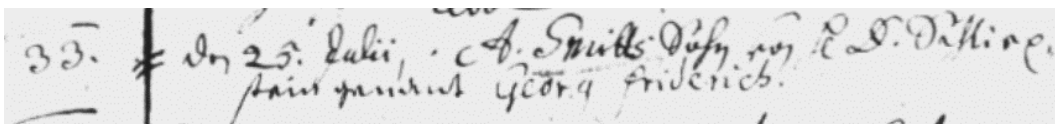 33. den 25. Julii, . A. Smitts Sohn von
stein genant Georg friderich.